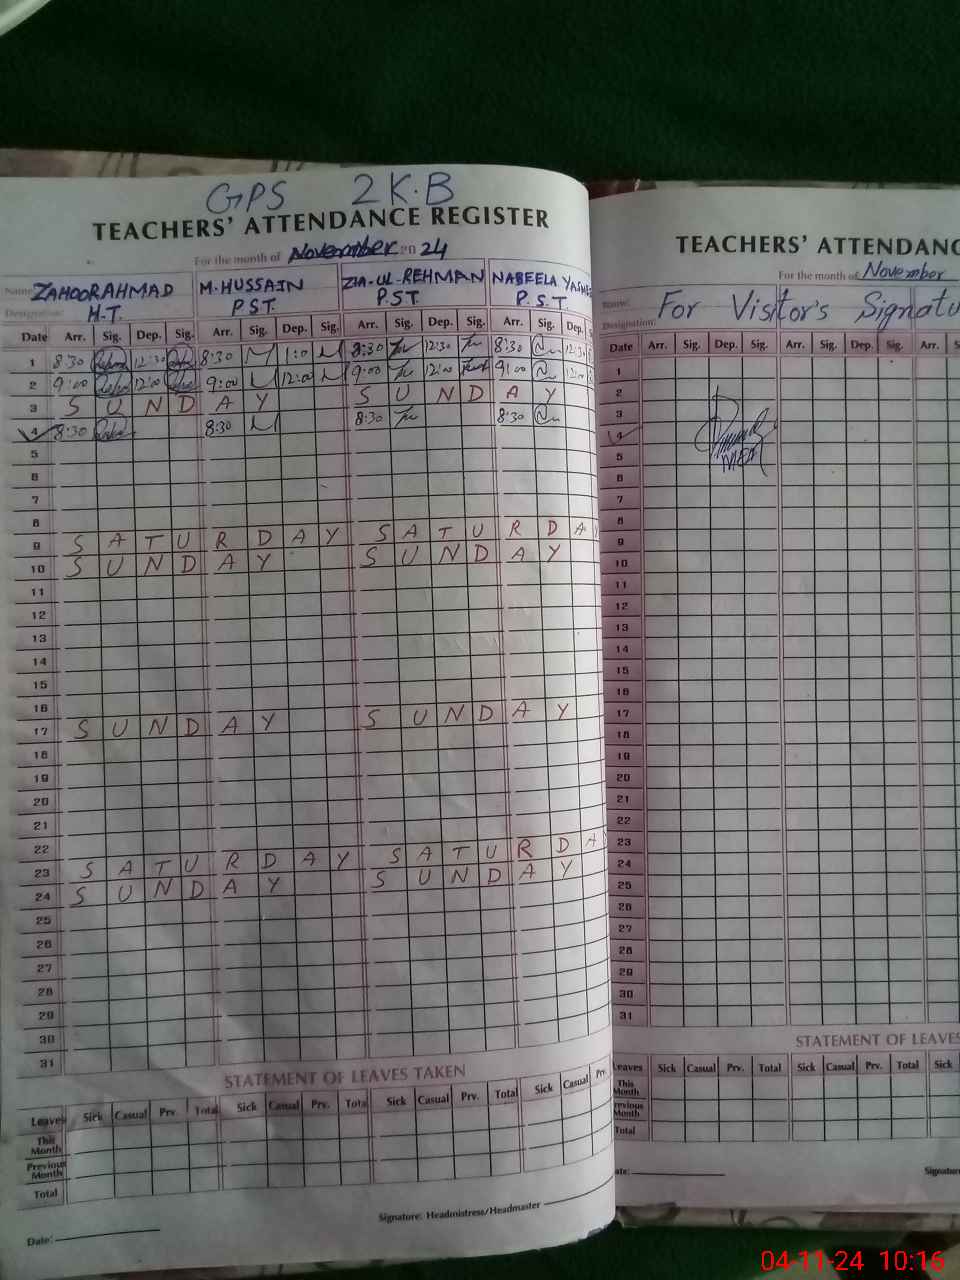 GPS 2 K.B
TEACHERS' ATTENDANCE REGISTER
For the month of November 2024
Name: ZAHOOR AHMAD M. HUSSAIN ZIA-UL-REHMAN NABEELA
Designation: H.T. P.S.T. P.S.T. P.S.T.
Date Arr. Sig. Dep. Sig. Arr. Sig. Dep. Sig. Arr. Sig. Dep. Sig. Arr. Sig. Dep.
1 8:30 12:30 8:30 1:0 8:30 12:30 8:30 12:30
2 9:00 12:00 9:00 12:00 9:00 12:00 9:00 12:00
3 SUNDAY SUNDAY
4 8:30 8:30 8:30 8:30
5
6
7
8
9 SATURDAY SATURDAY
10 SUNDAY SUNDAY
11
12
13
14
15
16
17 SUNDAY SUNDAY
18
19
20
21
22
23 SATURDAY SATURDA
24 SUNDAY SUNDAY
25
26
27
28
29
30
31
STATEMENT OF LEAVES TAKEN
Leaves Sick Casual Prv. Total Sick Casual Prv. Total Sick Casual Prv. Total Sick Casual Prv.
This Month
Previous Month
Total
Signature: Headmistress/Headmaster
Date:
TEACHERS' ATTENDANC
For the month of November
Name:
Designation: For Visitor's Signatu
Date Arr. Sig. Dep. Sig. Arr. Sig. Dep. Sig. Arr.
1
2
3
4
5
6
7
8
9
10
11
12
13
14
15
16
17
18
19
20
21
22
23
24
25
26
27
28
29
30
31
STATEMENT OF LEAVES
Leaves Sick Casual Prv. Total Sick Casual Prv. Total Sick
This Month
Previous Month
Total
ate: Signature:
04-11-24 10:16